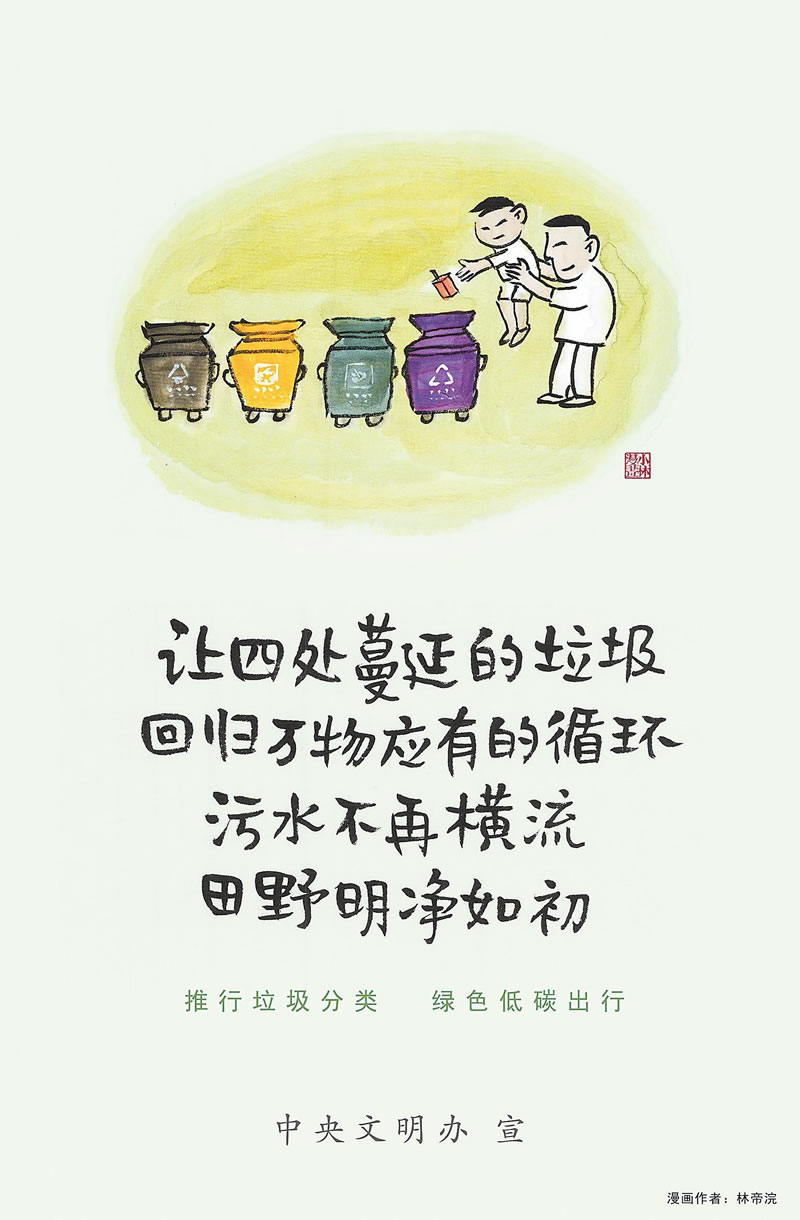 让四处蔓延的垃圾
回归万物应有的循环
污水不再横流
田野明净如初
推行垃圾分类 绿色低碳出行
中央文明办 宣
漫画作者：林帝浣